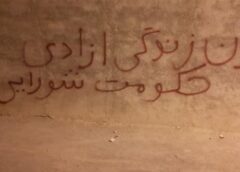 زندگی ازادی
حکومت شورایی